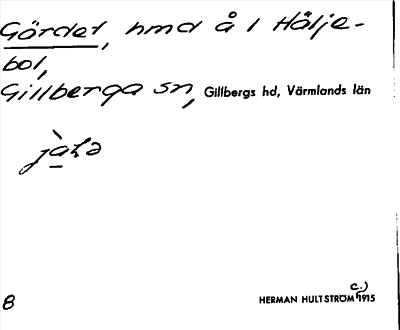 Gördet, hmd å 1 Hälje-
bol,
Gillberga sn, Gillbergs hd, Värmlands län
8
HERMAN HULTSTRÖM c.) 1915